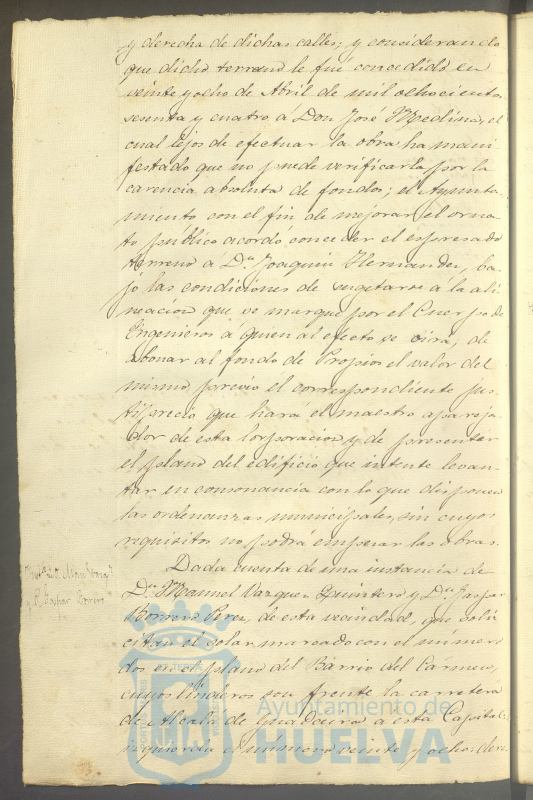 y derecha de dichas calles; y considerando
que dicho terreno le fué concedido en
veinte y ocho de Abril de mil ochocientos
sesenta y cuatro á Don José Medina, el
cual lejos de efectuar la obra ha mani
festado que no puede verificarla por la
carencia absoluta de fondos; el Ayunta
miento con el fin de mejorar el orna
to público acordó conceder el espresado
terreno a Dn. Joaquin Hernandez, ba
jo las condiciones de sugetarse á la ali
neacion que se marque por el Cuerpo de
Ingenieros á quien al efecto se oirá; de
abonar al fondo de Propios el valor del
mismo previo el correspondiente jus
tiprecio que hará el maestro apareja
dor de esta Corporacion y de presentar
el plano del edificio que intente levan
tar en consonancia con lo que disponen
las ordenanzas municipales, sin cuyos
requisitos no podrá empezar las obras.
Dada cuenta de una instancia de
Dn. Manuel Vazquez Quintero y Dn. Gaspar
Borrero Perez, de esta vecindad, que soli
citan el solar marcado con el numero
dos en el plano del Barrio del Carmen,
cuyos linderos son frente la carretera
de Alcalá de Guadaira a esta Capital:
izquierda el numero veinte y ocho: dere
Gaspar Borrero
Ayuntamiento de
HUELVA